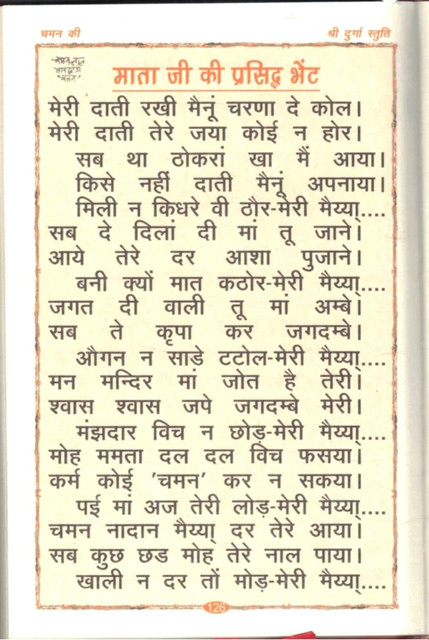 चमन की
श्री दुर्गा स्तुति
माता जी की प्रसिद्ध भेंट
मेरी दाती रखी मैनूं चरणा दे कोल।
मेरी दाती तेरे जया कोई न होर।
सब था ठोकरां खा मैं आया।
किसे नहीं दाती मैनूं अपनाया।
मिली न किधरे वी ठौर-मेरी मैय्या....
सब दे दिलां दी मां तू जाने।
आये तेरे दर आशा पुजाने।
बनी क्यों मात कठोर-मेरी मैय्या....
जगत दी वाली तू मां अम्बे।
सब ते कृपा कर जगदम्बे।
औगन न साडे टटोल-मेरी मैय्या....
मन मन्दिर मां जोत है तेरी।
श्वास श्वास जपे जगदम्बे मेरी।
मंझदार विच न छोड़-मेरी मैय्या....
मोह ममता दल दल विच फसया।
कर्म कोई 'चमन' कर न सकया।
पई मां अज तेरी लोड़-मेरी मैय्या....
चमन नादान मैय्या दर तेरे आया।
सब कुछ छड मोह तेरे नाल पाया।
खाली न दर तों मोड़-मेरी मैय्या....
126